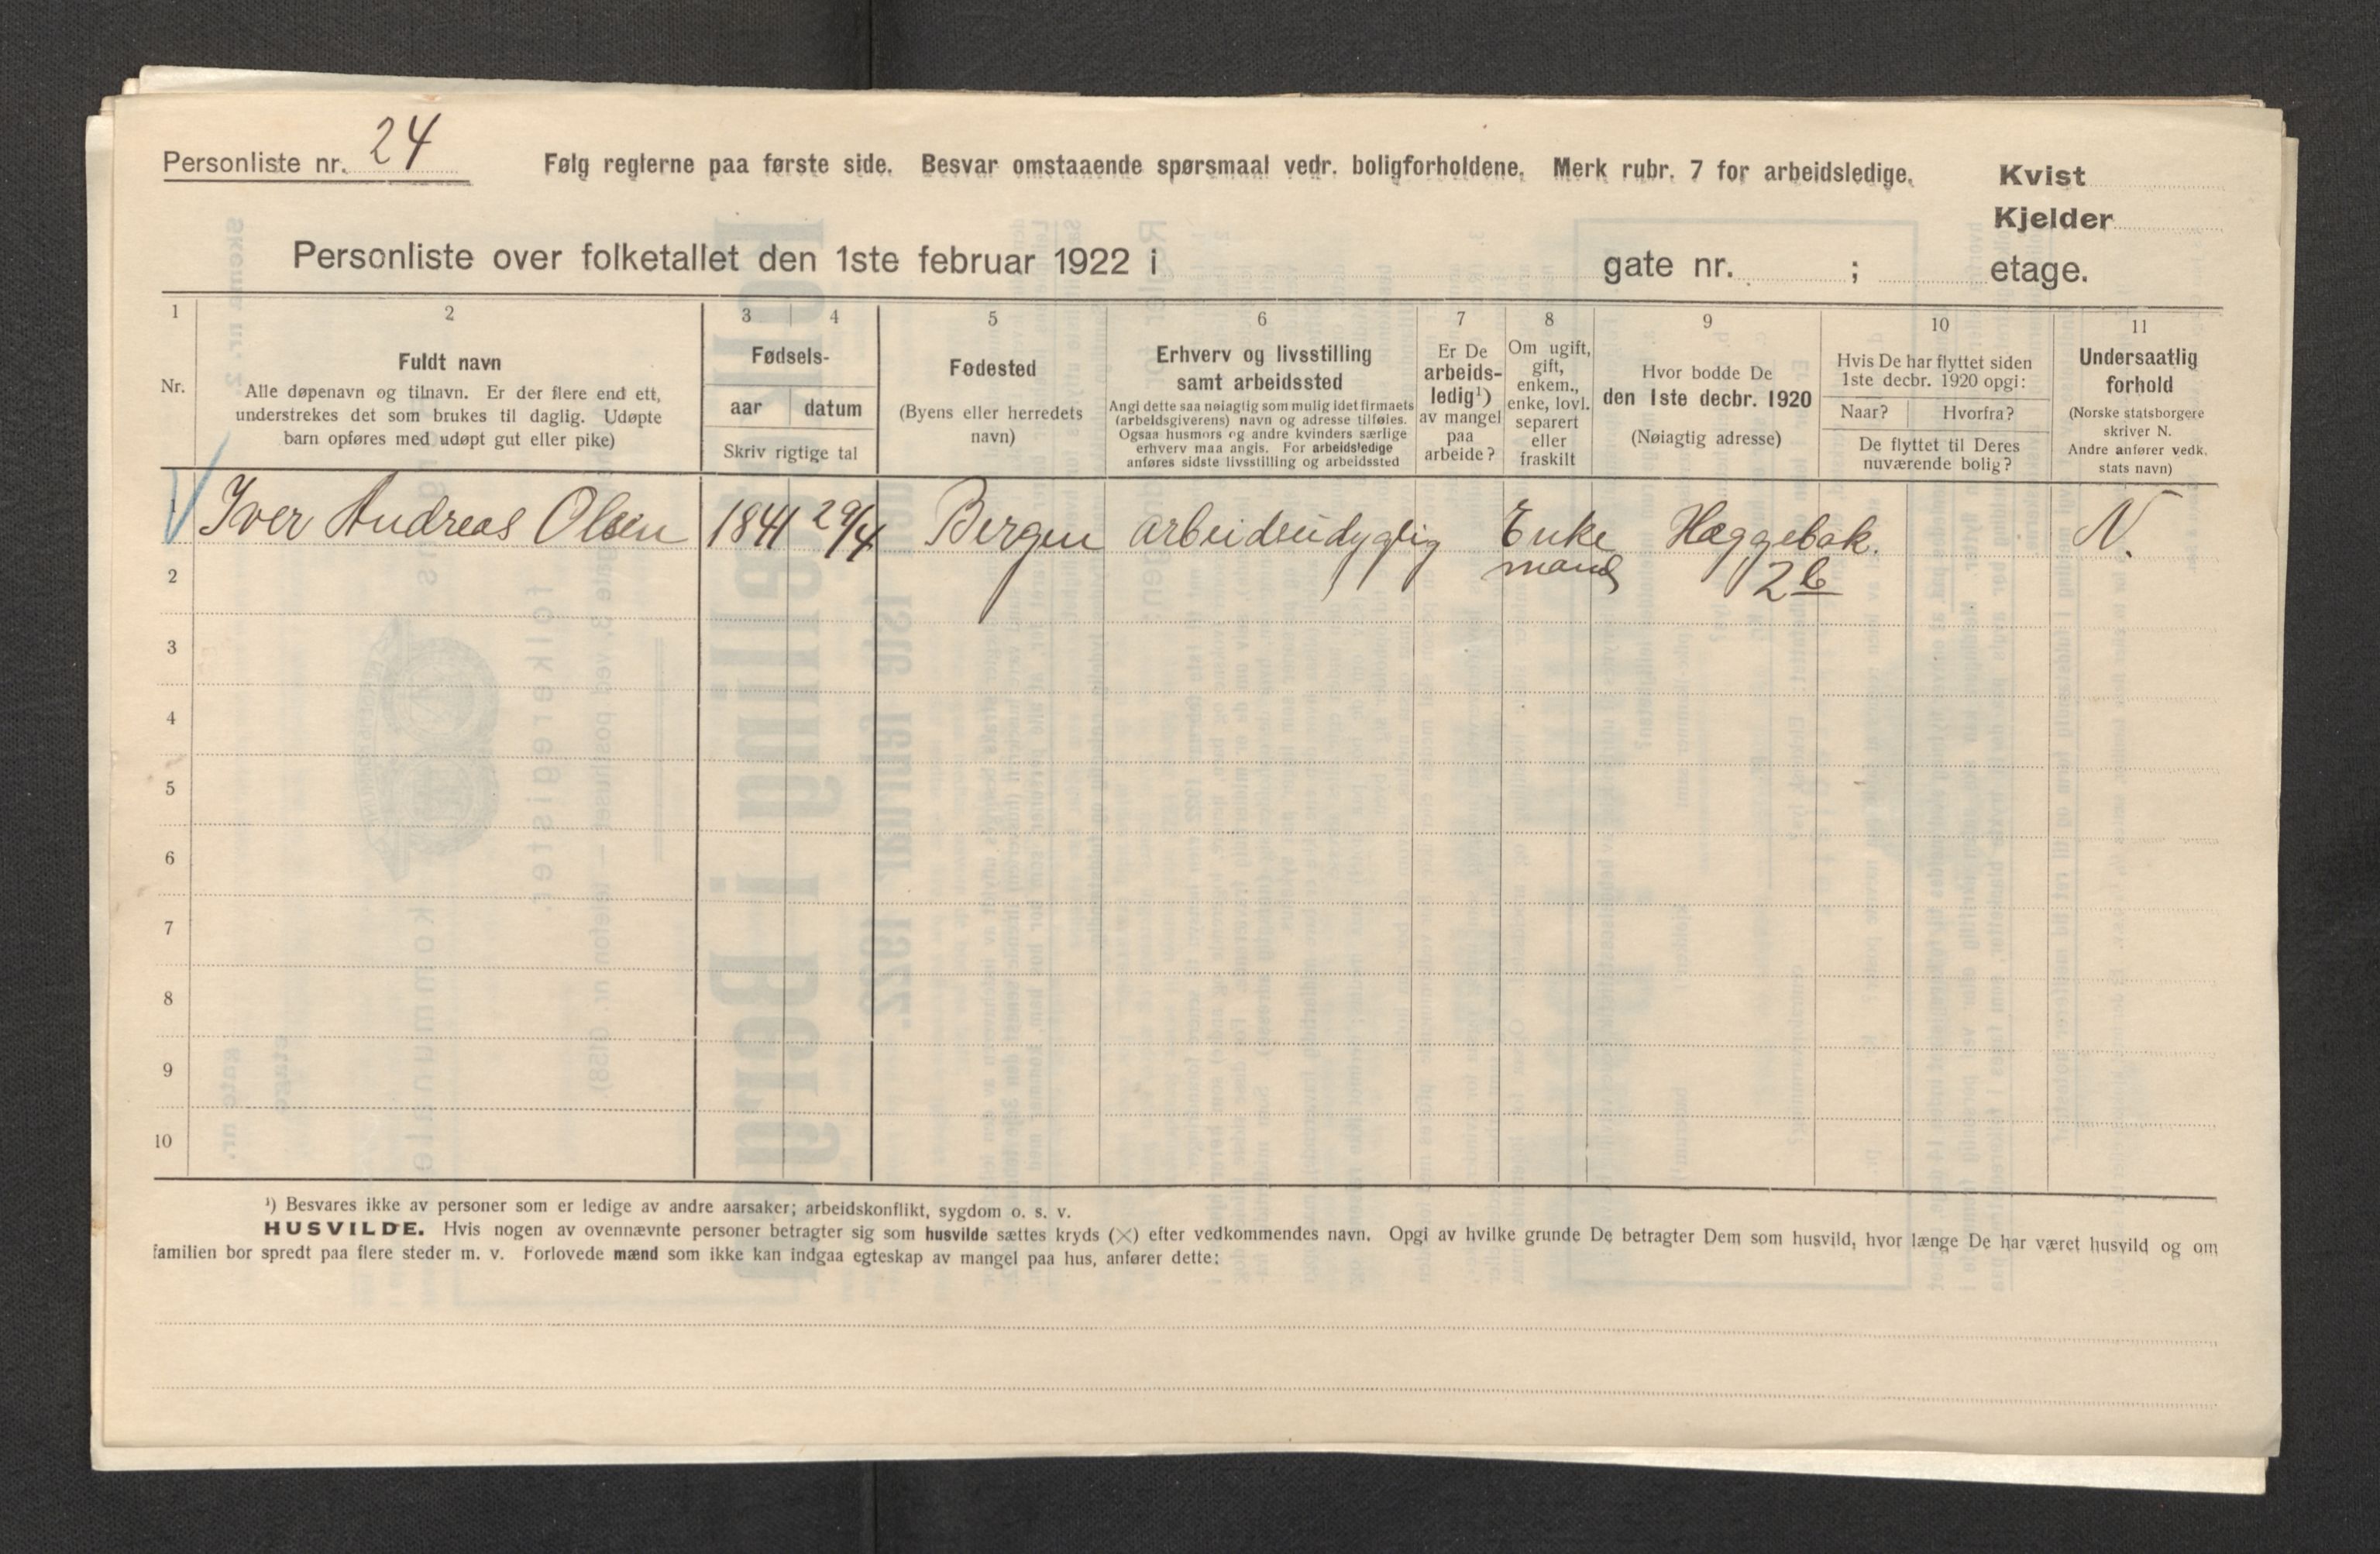 Personliste nr. 24
Følg reglerne paa første side. Besvar omstaaende spørsmaal vedr. boligforholdene. Merk rubr. 7 for arbeidsledige.
Kvist
Kjelder
Personliste over folketallet den 1ste februar 1922 i gate nr. ; etage.
1 2 3 4 5 6 7 8 9 10 11
Nr.
Fuldt navn
Alle døpenavn og tilnavn. Er der flere end ett,
understrekes det som brukes til daglig. Udøpte
barn opføres med udøpt gut eller pike)
Fødsels-
aar datum
Skriv rigtige tal
Fødested
(Byens eller herredets
navn)
Erhverv og livsstilling
samt arbeidssted
Angi dette saa nøiagtig som mulig idet firmaets
(arbeidsgiverens) navn og adresse tilføies.
Ogsaa husmors og andre kvinders særlige
erhverv maa angis. For arbeidsledige
anføres sidste livsstilling og arbeidssted
Er De
arbeids-
ledig¹)
av mangel
paa
arbeide?
Om ugift,
gift,
enkem.,
enke, lovl.
separert
eller
fraskilt
Hvor bodde De
den 1ste decbr. 1920
(Nøiagtig adresse)
Hvis De har flyttet siden
1ste decbr. 1920 opgi:
Naar? Hvorfra?
De flyttet til Deres
nuværende bolig?
Undersaatlig
forhold
(Norske statsborgere
skriver N.
Andre anfører vedk.
stats navn)
Iver Andreas Olsen 1841 29/4 Bergen arbeidsudygtig Enke Hæggebak. N.
mand 26
2
3
4
5
6
7
8
9
10
¹) Besvares ikke av personer som er ledige av andre aarsaker; arbeidskonflikt, sygdom o. s. v.
HUSVILDE. Hvis nogen av ovennævnte personer betragter sig som husvilde sættes kryds (×) efter vedkommendes navn. Opgi av hvilke grunde De betragter Dem som husvild, hvor længe De har været husvild og om
familien bor spredt paa flere steder m. v. Forlovede mænd som ikke kan indgaa egteskap av mangel paa hus, anfører dette: